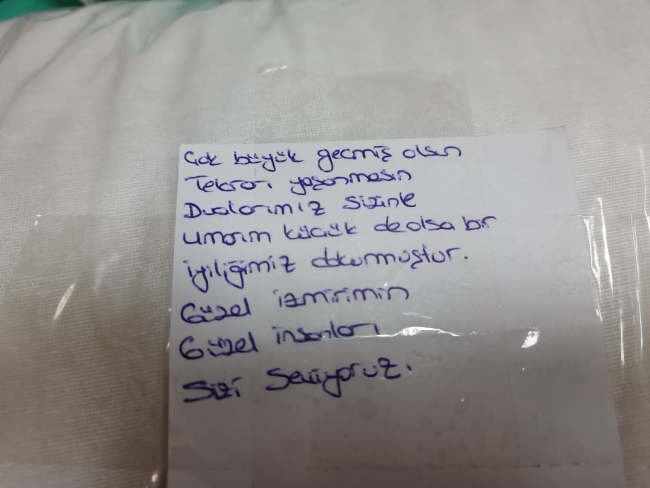 Çok büyük geçmiş olsun
Tekrarı yaşanmasın
Dualarımız sizinle
umarım küçük de olsa bir
iyiliğimiz dokunmuştur.
Güzel izmirimin
Güzel insanları
Sizi Seviyoruz.